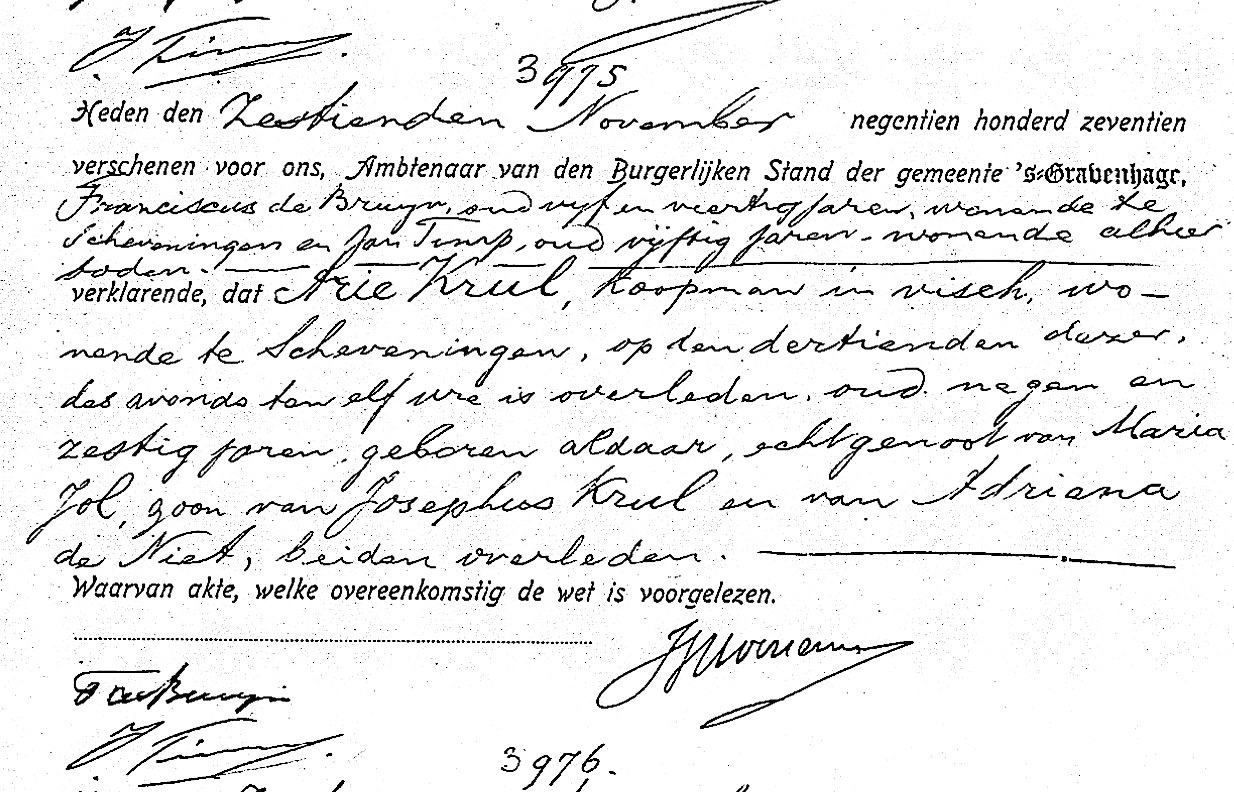 3975
Heden den Zestienden November negentien honderd zeventien
verschenen voor ons, Ambtenaar van den Burgerlijken Stand der gemeente 's-Gravenhage,
Franciscus de Bruyn, oud vijf en veertig jaren, wonende te
Scheveningen en Jan Timp, oud vijftig jaren, wonende alhier
boden.
verklarende, dat Arie Krul, koopman in visch, wo-
nende te Scheveningen, op den dertienden dezer,
des avonds ten elf ure is overleden, oud negen en
zestig jaren, geboren aldaar, echtgenoot van Maria
Jol, zoon van Josephus Krul en van Adriana
de Niet, beiden overleden.
Waarvan akte, welke overeenkomstig de wet is voorgelezen.
F de Bruyn
3976.